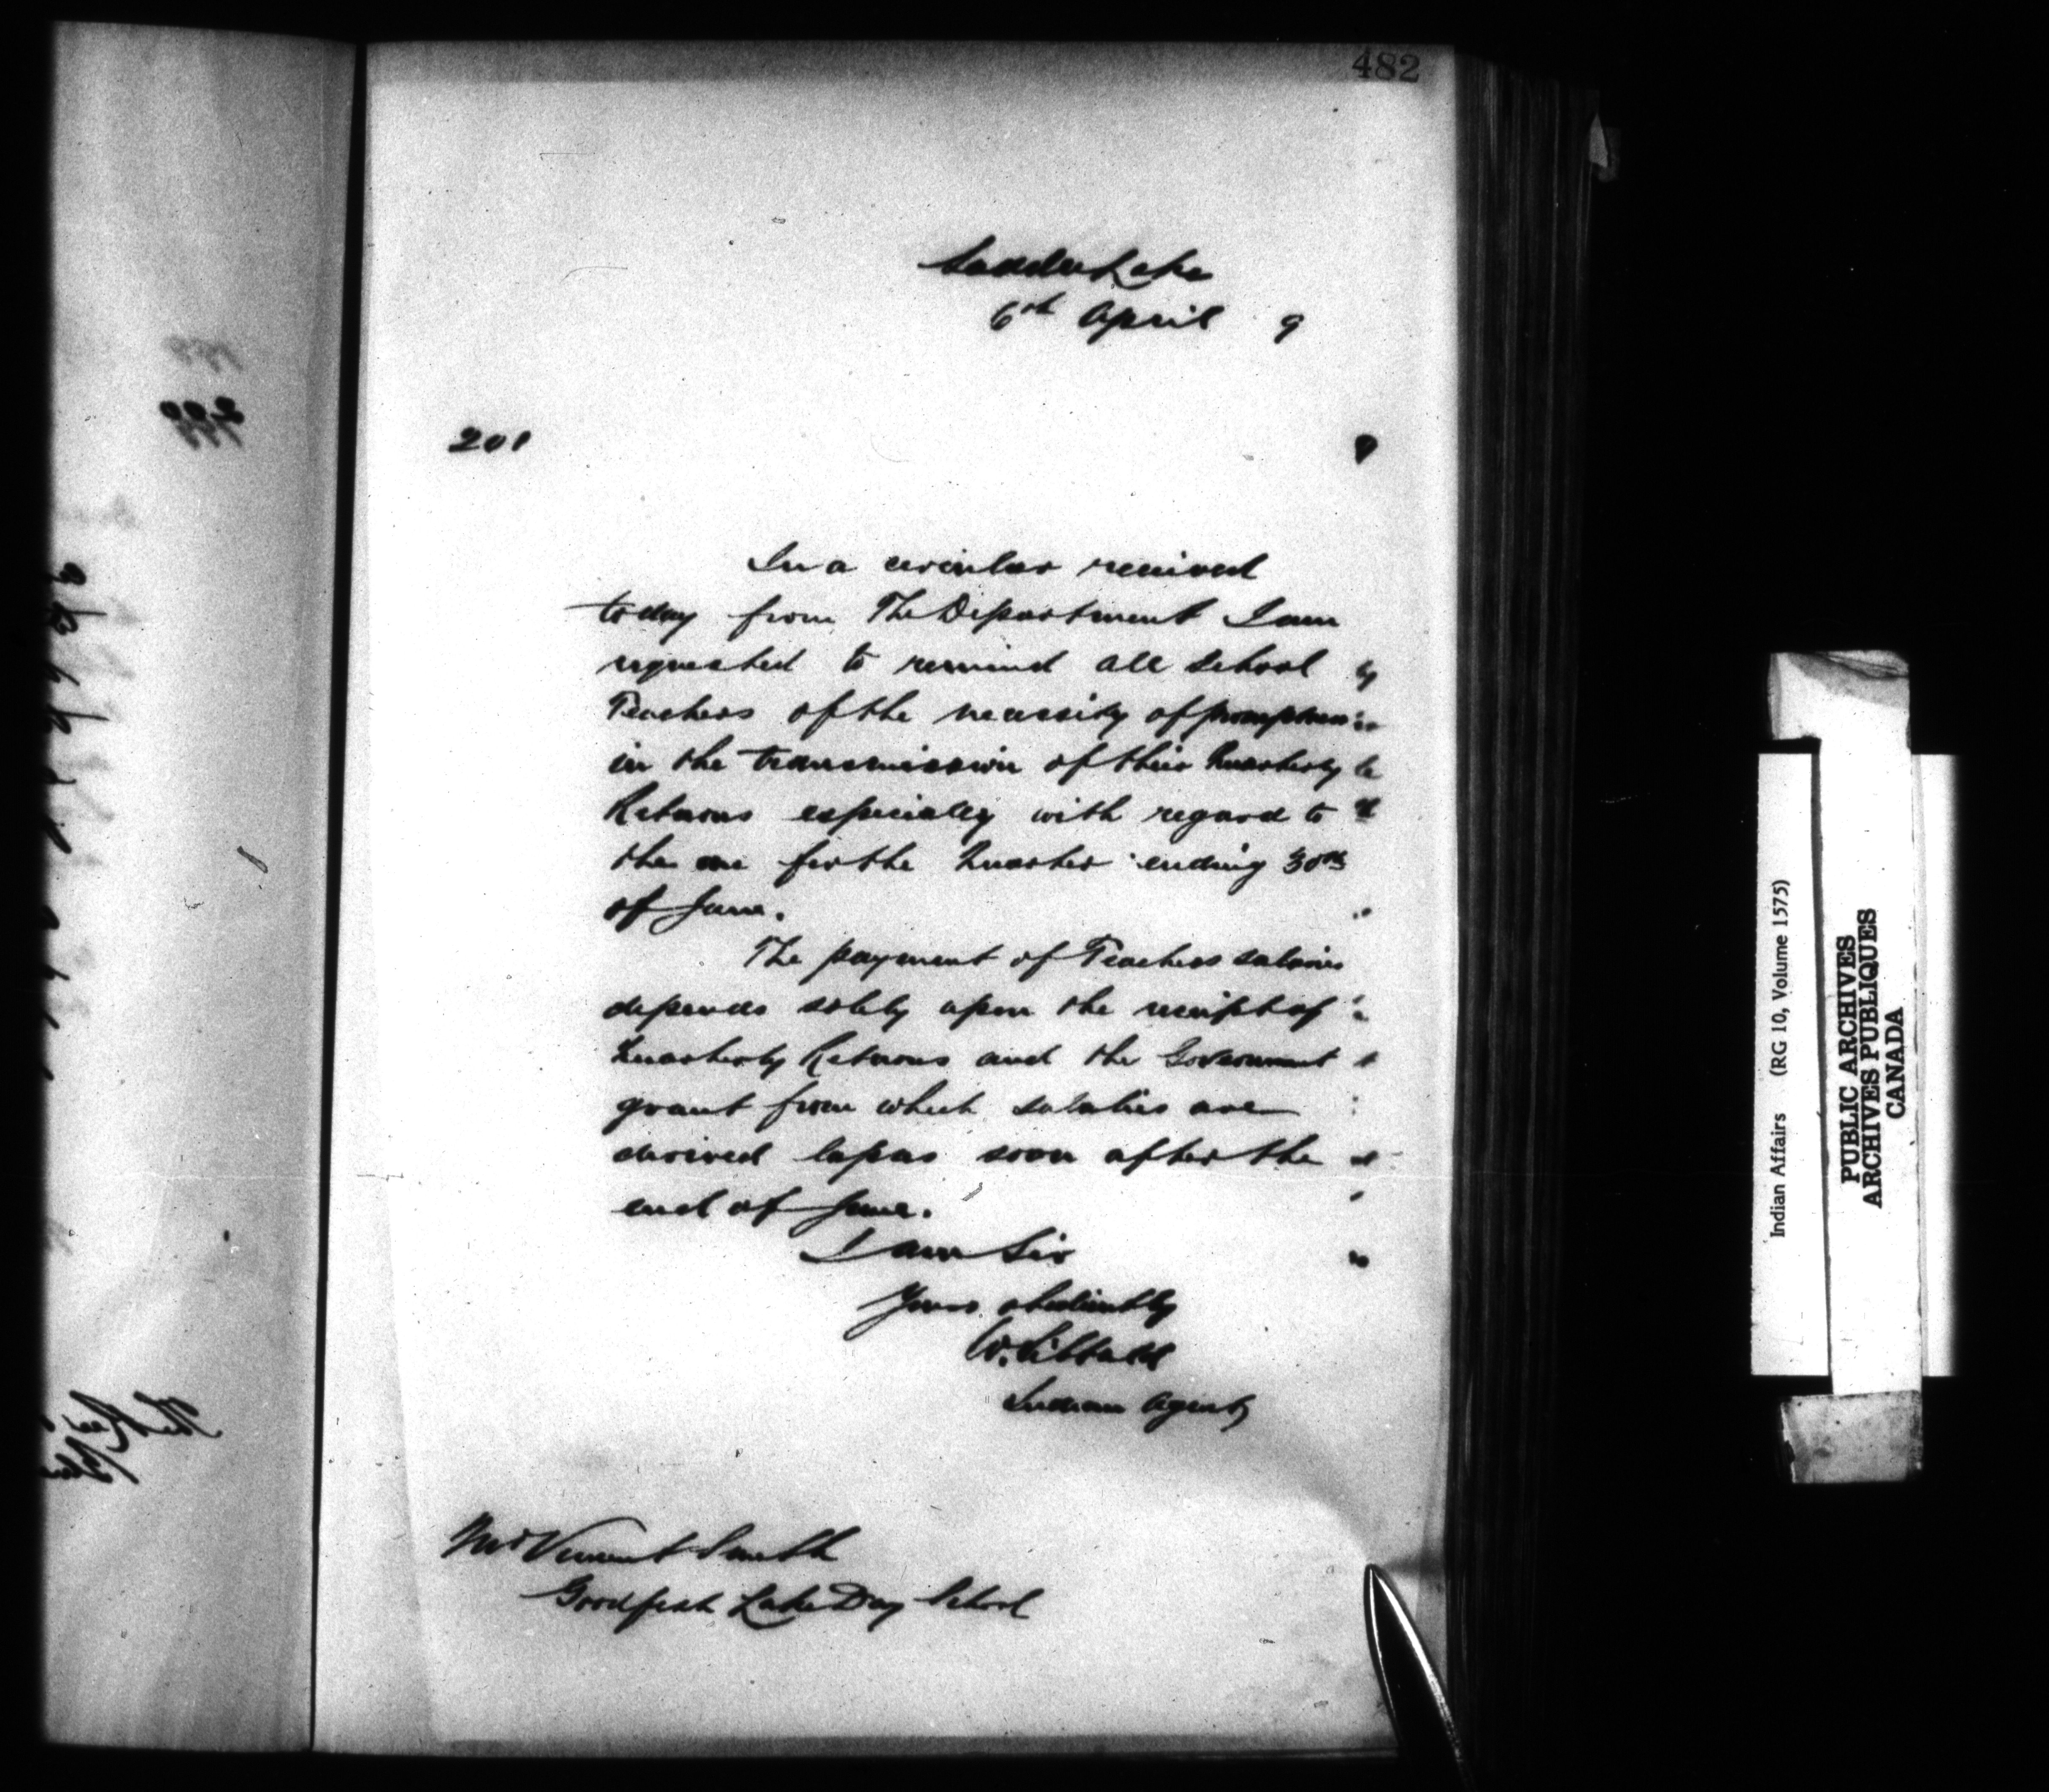 482
Saddle Lake
6th April 9
201
In a circular received
today from The Department I am
requested to remind all School
Teachers of the necessity of promptness
in the transmission of their Quarterly
Returns especially with regard to
the one for the Quarter ending 30th
of June.
The payment of Teachers salaries
depends solely upon the receipt of
Quarterly Returns and the Government
grant from which salaries are
derived lapses soon after the
end of June.
I am Sir
Yours obediently
W. Sibbald
Indian Agent
Mr Vincent Smith
Goodfish Lake Day School
Indian Affairs (RG 10, Volume 1575)
PUBLIC ARCHIVES
ARCHIVES PUBLIQUES
CANADA